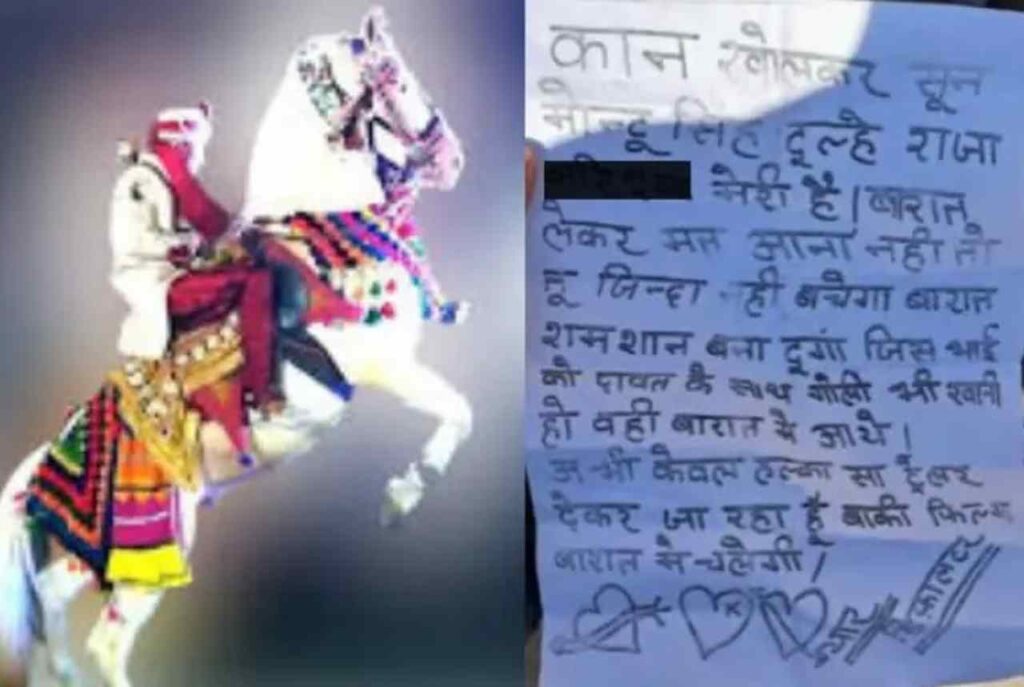 कान खोलकर सून
सिंह दूल्हे राजा
मेरी है। बारात
लेकर मत आना नही तो
तू जिन्दा नही बचेगा बारात
शमशान बना दूगां जिस भाई
को दावत के साथ गोली भी खानी
हो वही बारात मे आये।
अभी केवल हल्का सा ट्रेलर
देकर जा रहा हूँ बाकी फिल्म
बारात मे चलेगी।